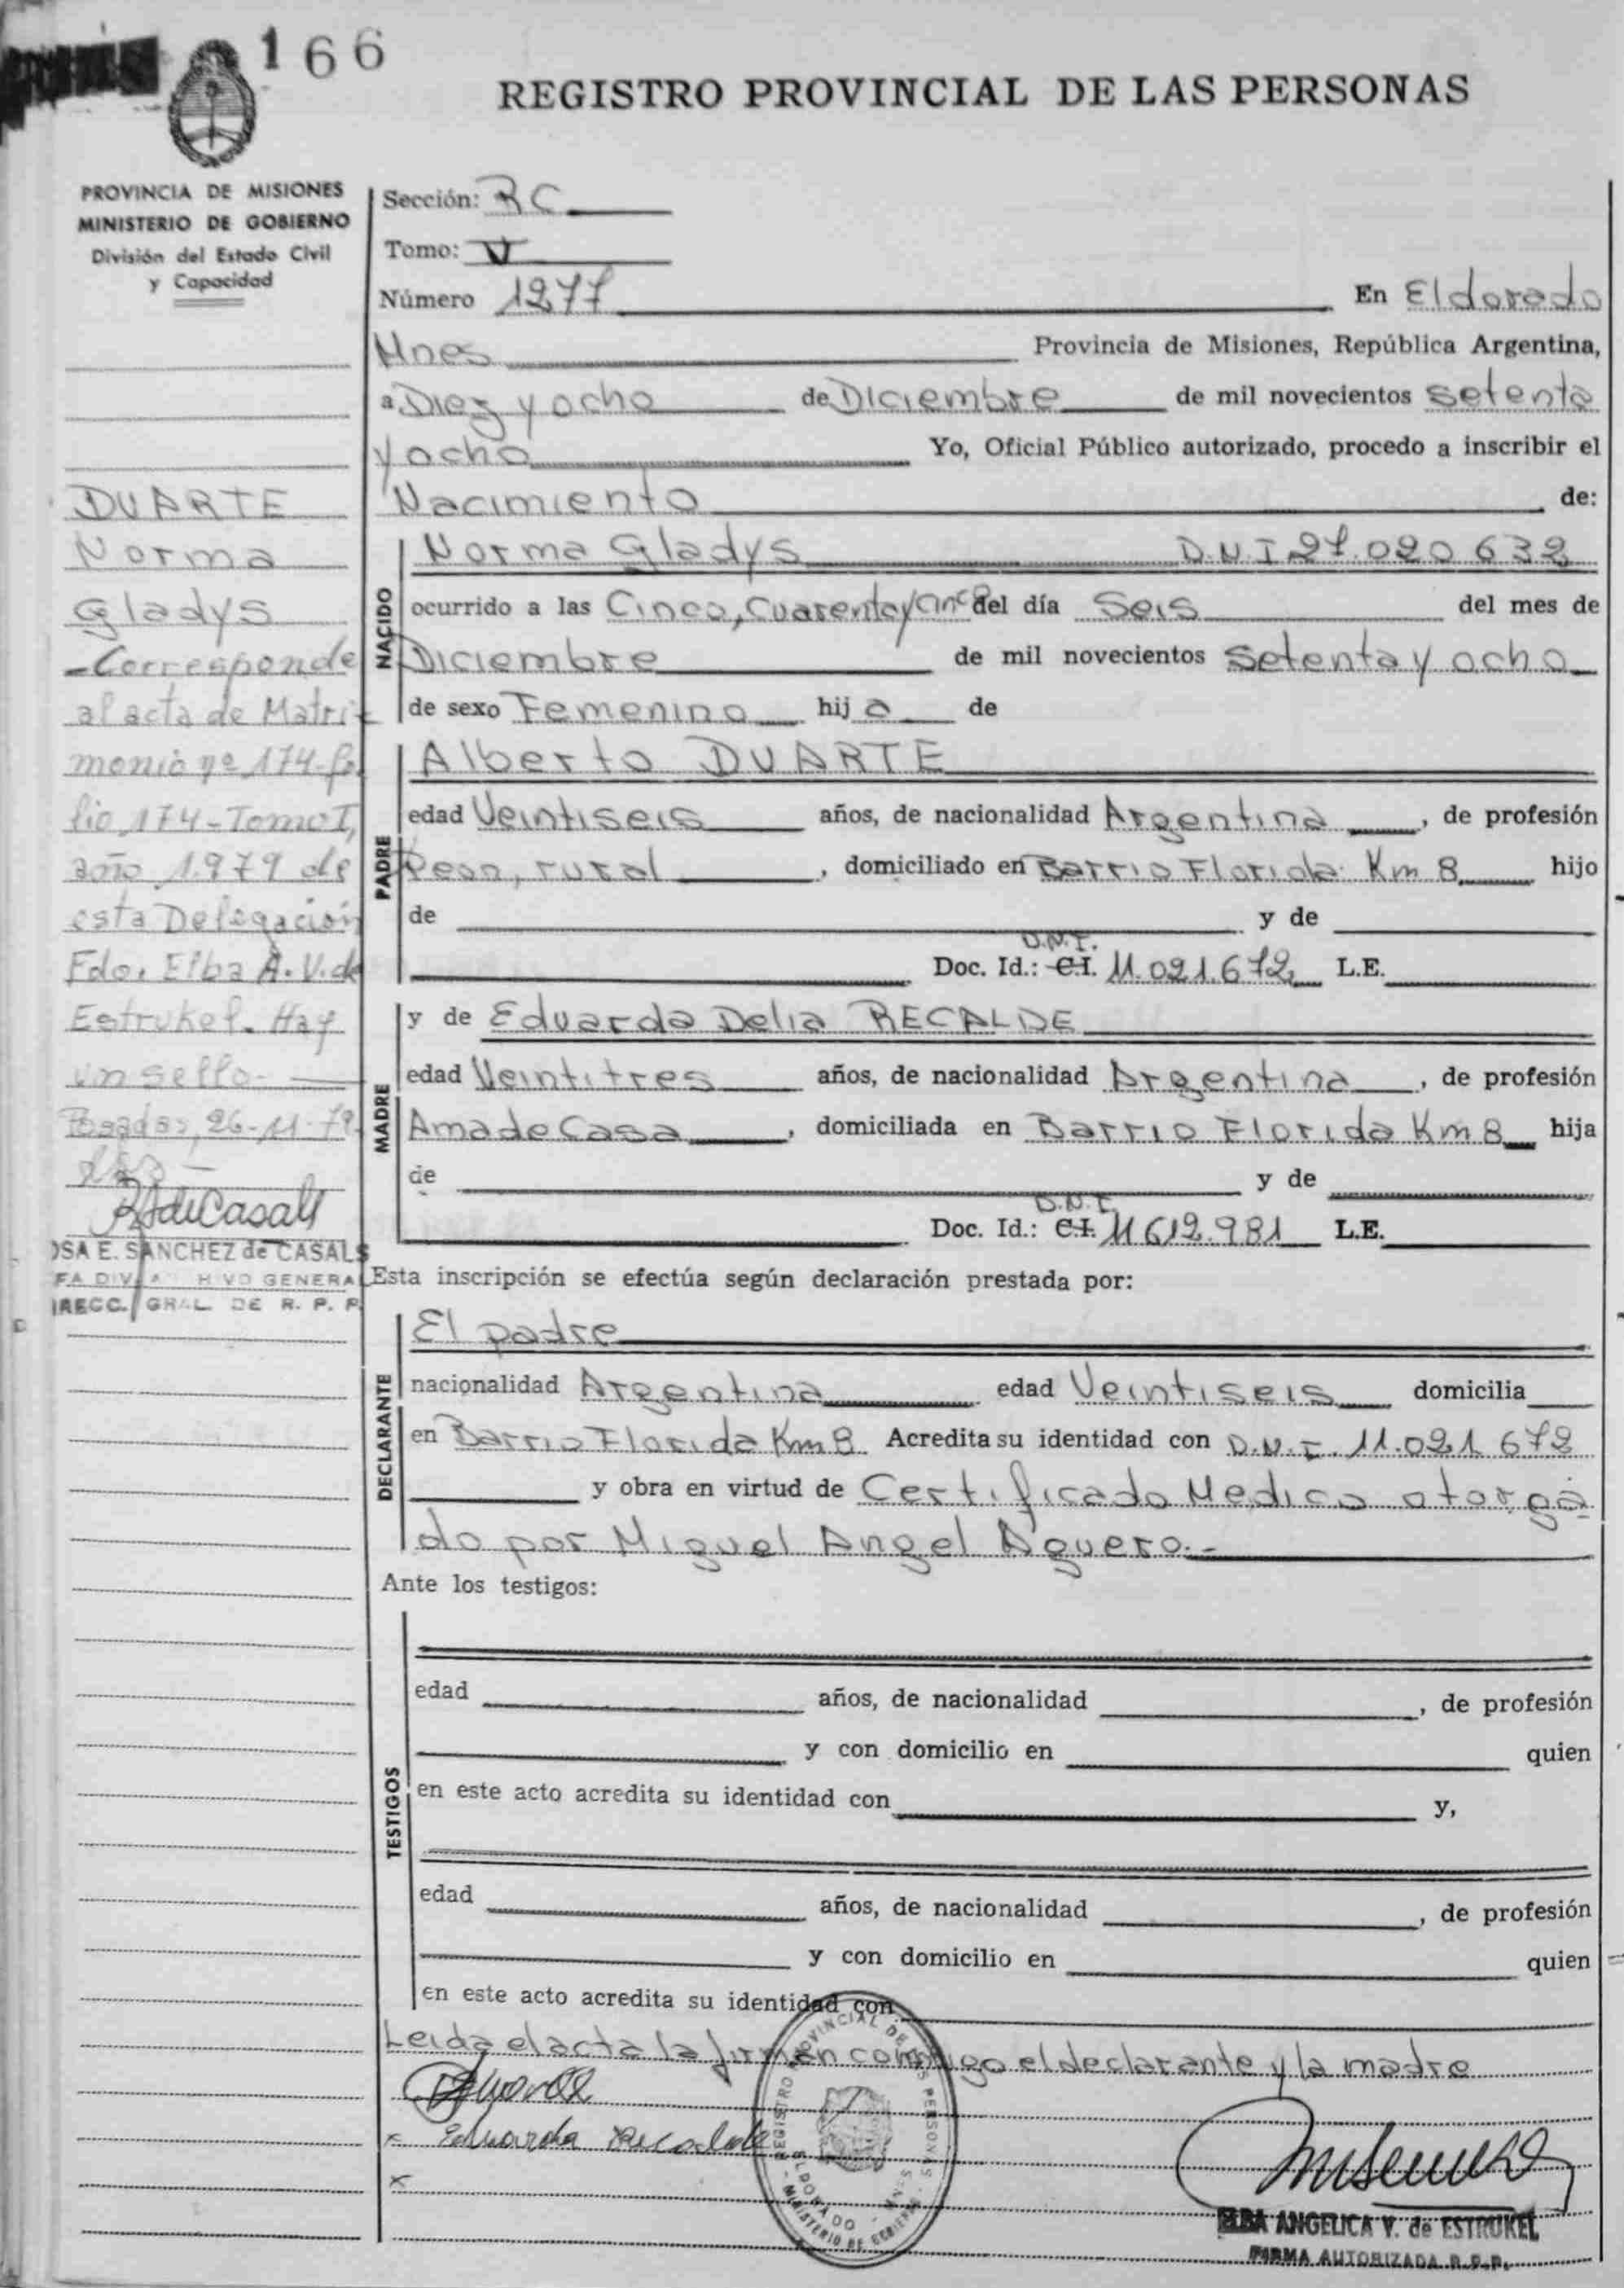 166
REGISTRO PROVINCIAL DE LAS PERSONAS
PROVINCIA DE MISIONES
MINISTERIO DE GOBIERNO
División del Estado Civil
y Capacidad
DUARTE
Norma
Gladys
-Corresponde
al acta de Matri
monio nº 174-fo
lio 174-Tomo I,
año 1.979 de
esta Delegación
Fdo. Elba A. V. de
Estrukel. Hay
un sello-
Posadas, 26-11-79
OSA E. SANCHEZ de CASALS
FA DIV. A HIVO GENERAL
IRECC. GRAL DE R. P. P.
Sección: RC
Tomo: V
Número 1277 En Eldorado
Mnes Provincia de Misiones, República Argentina,
a Diez y ocho de Diciembre de mil novecientos setenta
y ocho Yo, Oficial Público autorizado, procedo a inscribir el
Nacimiento de:
NACIDO
Norma Gladys D.N.I 27.020 632
ocurrido a las Cinco, Cuarenta y cinco del día Seis del mes de
Diciembre de mil novecientos setenta y ocho
de sexo Femenino hija de
PADRE
Alberto DUARTE
edad Veintiseis años, de nacionalidad Argentina, de profesión
Peon, rural, domiciliado en Barrio Florida Km 8 hijo
de y de
D.N.I.
Doc. Id.: C.I. 11.021.672 L.E.
MADRE
y de Eduarda Delia RECALDE
edad Veintitres años, de nacionalidad Argentina, de profesión
Ama de Casa, domiciliada en Barrio Florida Km 8 hija
de y de
D.N.I.
Doc. Id.: C.I. 11 612.981 L.E.
Esta inscripción se efectúa según declaración prestada por:
DECLARANTE
El padre
nacionalidad Argentina edad Veintiseis domicilia
en Barrio Florida Km 8 Acredita su identidad con D.N.I. 11.021 672
y obra en virtud de Certificado Medico otorga
do por Miguel Angel Aguero.-
Ante los testigos:
TESTIGOS
edad años, de nacionalidad , de profesión
y con domicilio en quien
en este acto acredita su identidad con y,
edad años, de nacionalidad , de profesión
y con domicilio en quien
en este acto acredita su identidad con
Leida el acta la firman conmigo el declarante y la madre
x Eduarda Recalde
x
REGISTRO PROVINCIAL DE LAS PERSONAS
ELDORADO - MNES
MINISTERIO DE GOBIERNO
ELBA ANGELICA V. de ESTRUKEL
FIRMA AUTORIZADA R.P.P.